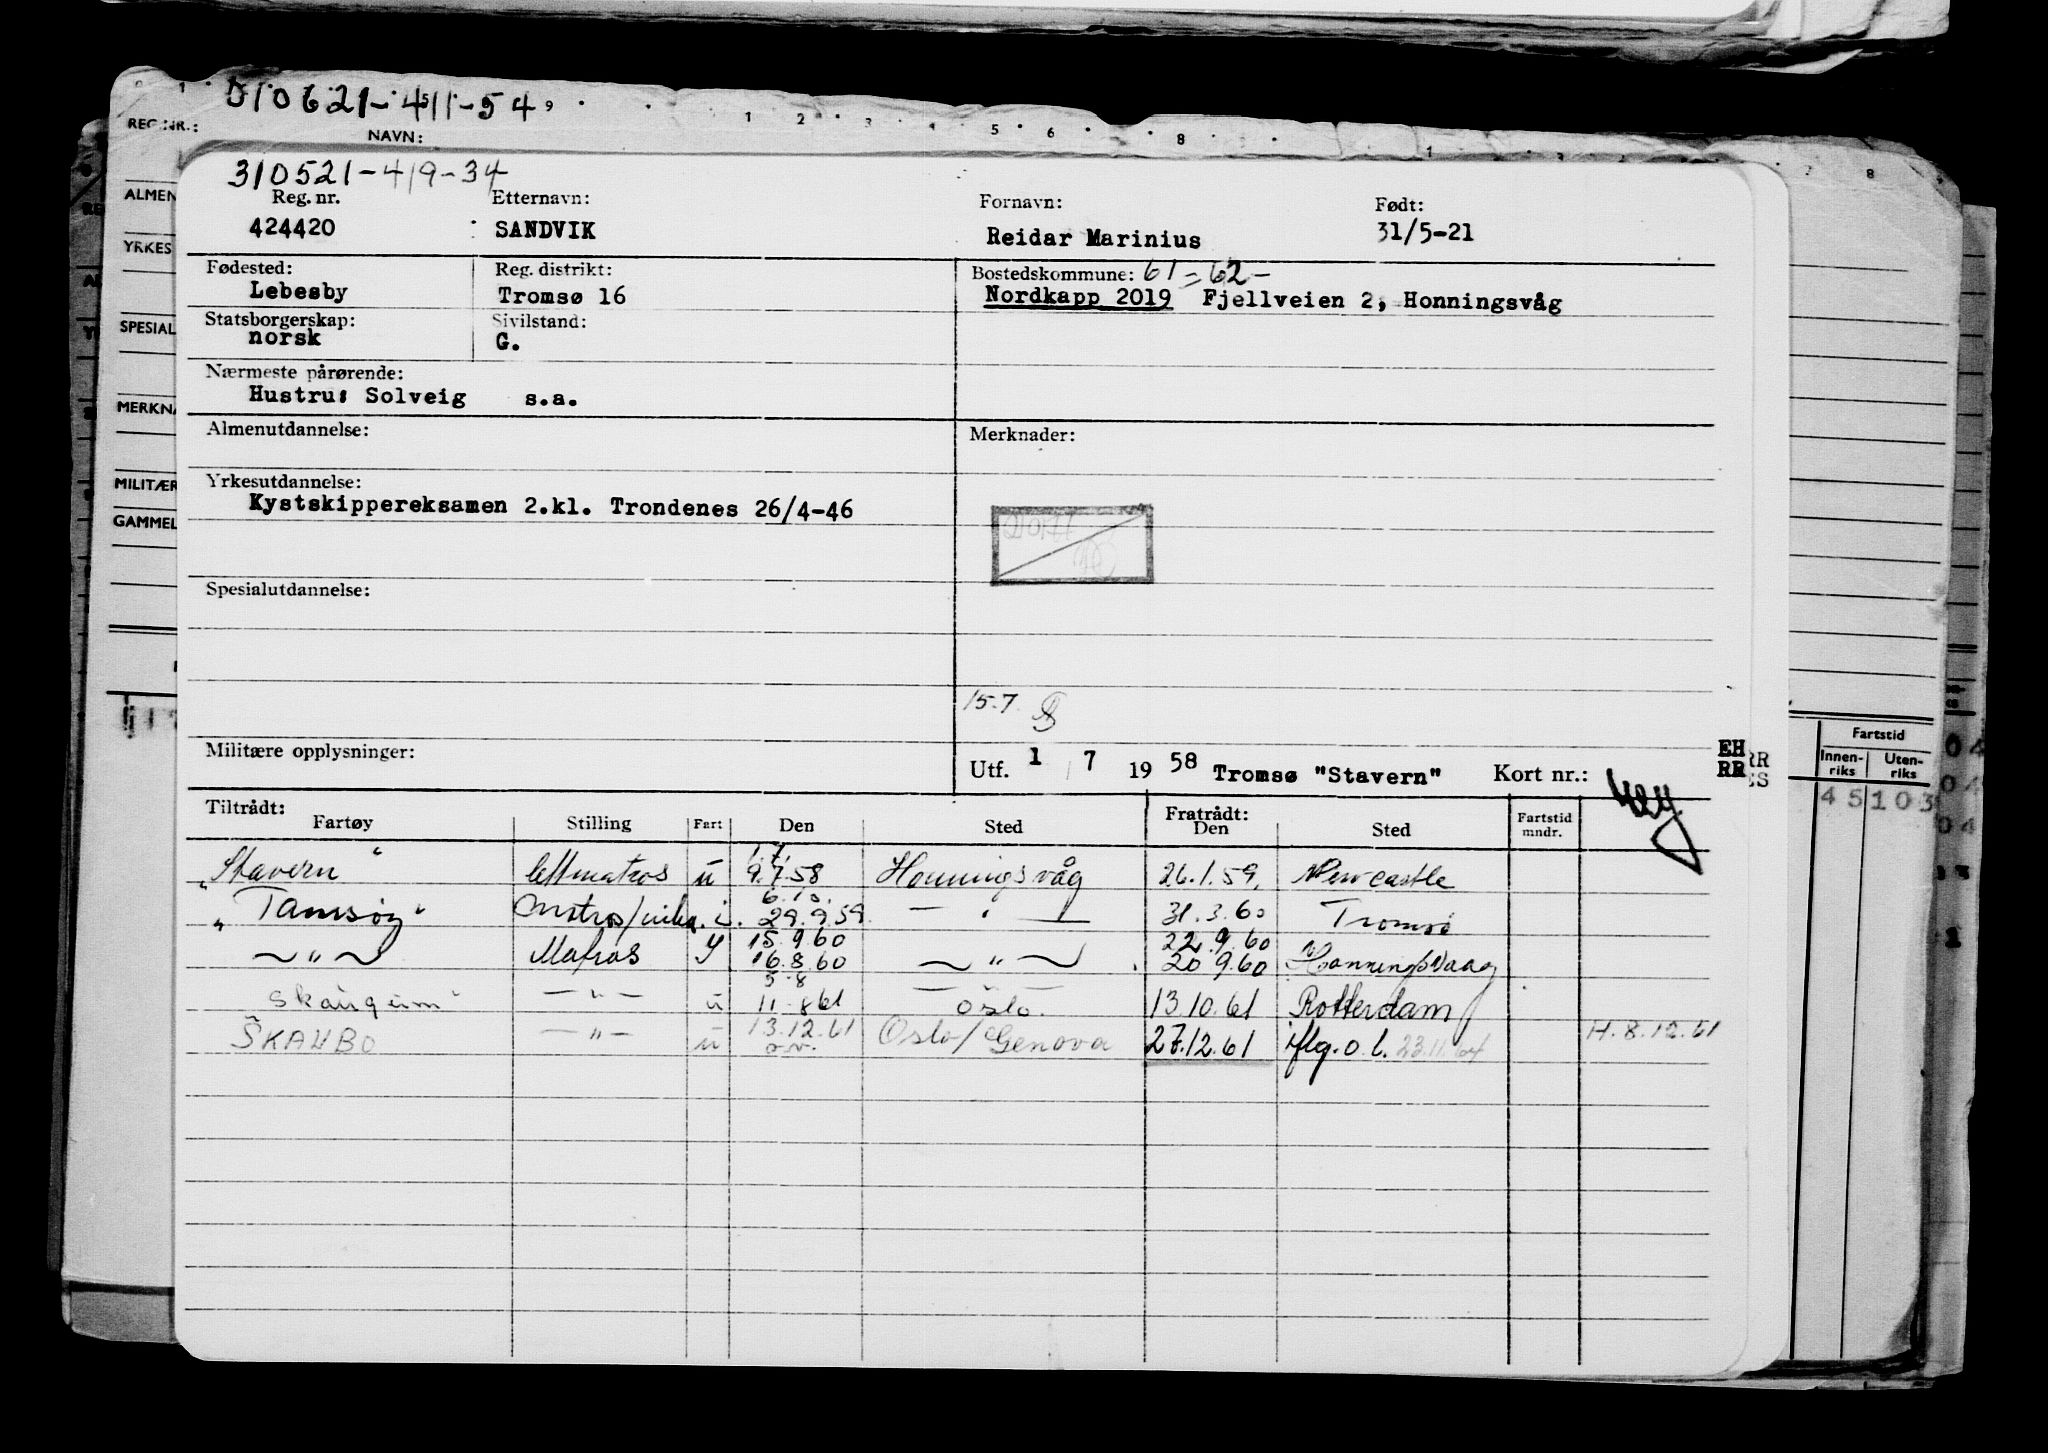 010621-411-54
REG.NR.:
NAVN:
310521-419-34
Reg. nr. Etternavn: Fornavn: Født:
424420 SANDVIK Reidar Marinius 31/5-21
Fødested: Reg. distrikt: Bostedskommune: 61 = 62 -
Lebesby Tromsø 16 Nordkapp 2019 Fjellveien 2, Honningsvåg
Statsborgerskap: Sivilstand:
norsk G.
Nærmeste pårørende:
Hustru: Solveig s.a.
Almenutdannelse: Merknader:
Yrkesutdannelse:
Kystskippereksamen 2.kl. Trondenes 26/4-46
Spesialutdannelse:
15.7
Militære opplysninger:
Utf. 1 7 19 58 Tromsø "Stavern" Kort nr.:
EH
RR
Tiltrådt: Fratrådt:
Fartøy Stilling Fart Den Sted Den Sted Fartstid mndr.
1.7.
"Stavern" lettmatros u 9.7.58 Honningsvåg 26.1.59. Newcastle
6.10.
"Tamsøy" i. 29.9.59. — " — 31.3.60 Tromsø
15.9.60 22.9.60
— " — Matros 16.8.60 — " — 20.9.60 Honningsvaag
5-8
Skaugum — " — u 11-8 61 Oslo. 13.10.61 Rotterdam
SKAUBO — " — u 13.12.61 Oslo/Genova 27.12.61 iflg. o.l. 23.11.64 H. 8.12.61
ALMEN
YRKES
SPESIAL
MERKNA
MILITÆR
GAMMEL
Fartstid
Innen-riks Uten-riks
45 103